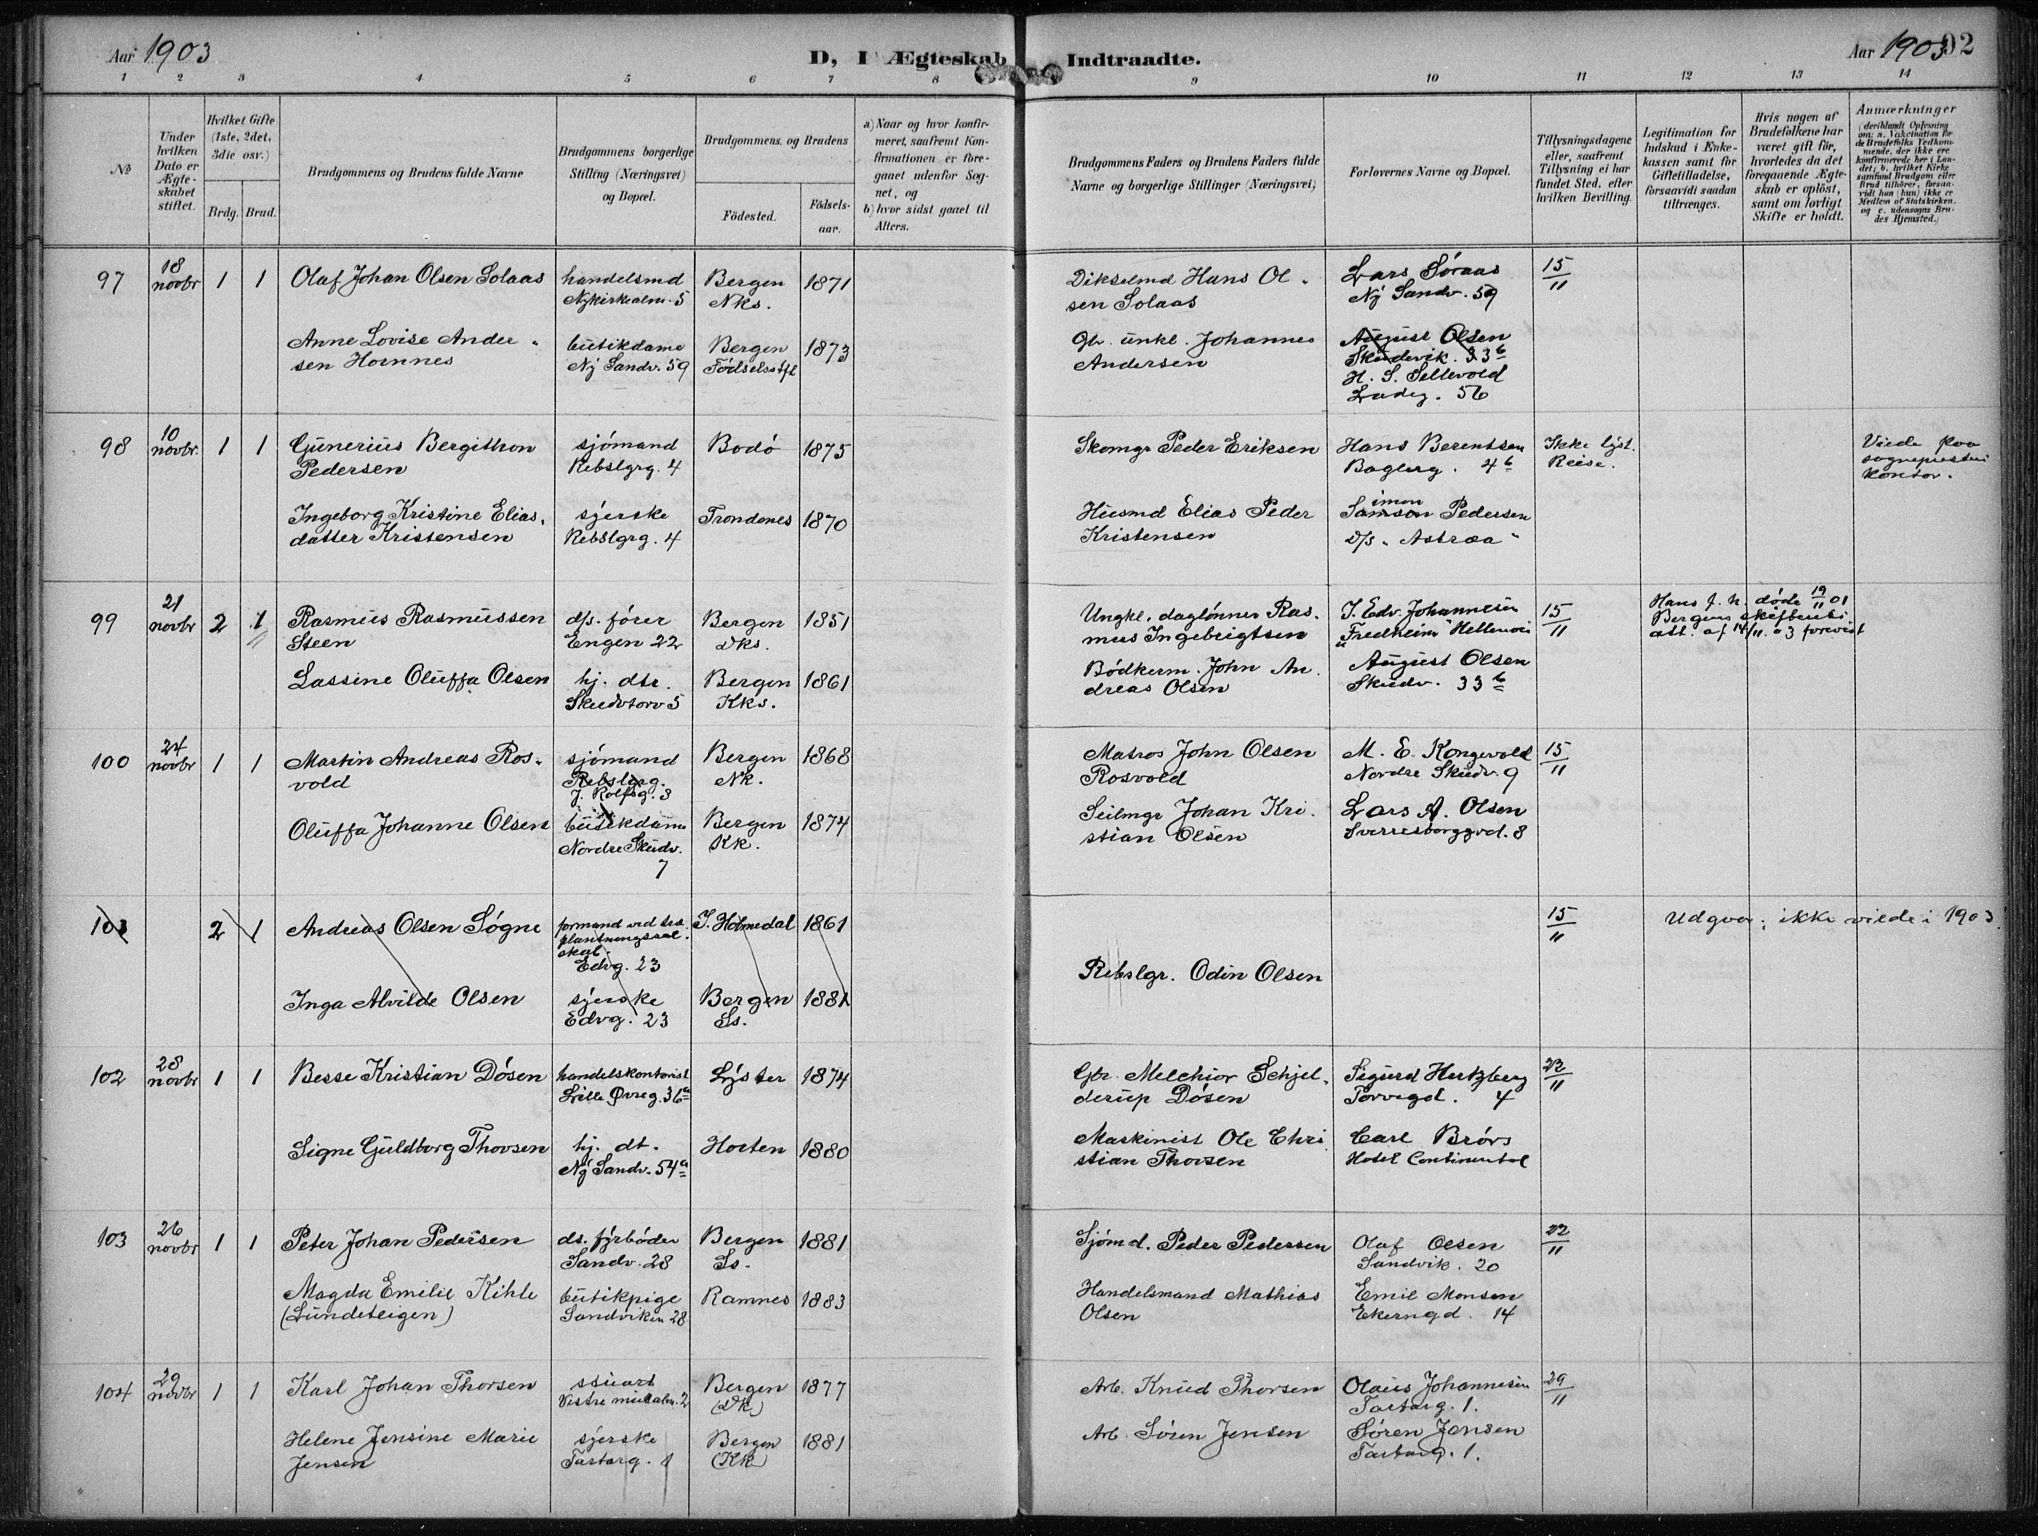 Aar 1903
D, I Ægteskab Indtraadte.
Aar 1903
92
1 2 3 4 5 6 7 8 9 10 11 12 13 14
No
Under hvilken Dato er Ægteskabet stiftet.
Hvilket Gifte (1ste, 2det, 3die osv.)
Brdg. Brud.
Brudgommens og Brudens fulde Navne
Brudgommens borgerlige Stilling (Næringsvei) og Bopæl.
Brudgommens og Brudens
Födested.
Födselsaar.
a) Naar og hvor konfirmeret, saafremt Konfirmationen er foregaaet udenfor Sognet, og
b) hvor sidst gaaet til Alters.
Brudgommens Faders og Brudens Faders fulde Navne og borgerlige Stillinger (Næringsvei)
Forlovernes Navne og Bopæl.
Tillysningsdagene eller, saafremt Tillysning ei har fundet Sted, efter hvilken Bevilling.
Legitimation for Indskud i Enkekassen samt for Giftetilladelse, forsaavidt saadan tiltrænges.
Hvis nogen af Brudefolkene har været gift för, hvorledes da det foregaaende Ægteskab er oplöst, samt om lovligt Skifte er holdt.
Anmærkninger
97
18 novbr
1 1
Olaf Johan Olsen Solaas
handelsmd
Nykirkealm. 5
Bergen
Nks.
1871
Dikselmd Hans Ol-
sen Solaas
Lars Søraas
Ny Sandv. 59
15/11
Anne Lovise Ander-
sen Hornnes
butikdame
Ny Sandv. 59
Bergen
Fødselsstft
1873
Gbr. unkl. Johannes
Andersen
August Olsen
Skudevik. 33 b
H. S. Sellevold
Ladeg. 56
98
10 novbr.
1 1
Gunerius Bergithon
Pedersen
sjømand
Rebslgrg. 4
Bodö
1875
Skomgr Peder Eriksen
Hans Berentsen
Bagerg. 4 b
Ikke lyst.
Reise.
Viede paa
sogneprestens
kontor.
Ingeborg Kristine Elias-
datter Kristensen
syerske
Rebslgrg. 4
Trondenes
1870
Husmd Elias Peder
Kristensen
Simon
Samson Pedersen
D/s "Astræa"
99
21 novbr
2 1
Rasmus Rasmussen
Steen
d/s. fører
Engen 22
Bergen
Dks.
1851
Ungkl. daglønner Ras-
mus Ingebrigtsen
I. Edv. Johannesen
"Fredheim" Hellevei
15/11
Hans f. h. døde 19/11 01
Bergens skifteretts
att. af 14/11. 03 forevist
Lassine Oluffa Olsen
hj. dtr.
Skudvtorv 5
Bergen
Kks.
1861
Bødkerm. John An-
dreas Olsen
August Olsen
Skudv. 33 b
100
24 novbr
1 1
Martin Andreas Ros-
vold
sjømand
Rebslgrg.
J. Rolfsg. 3
Bergen
Nk.
1868
Matros John Olsen
Rosvold
M. E. Kongevold
Nordre Skudv. 9
15/11
Oluffa Johanne Olsen
butikdame
Nordre Skudv.
7
Bergen
Kk.
1874
Seilmgr Johan Kri-
stian Olsen
Lars A. Olsen
Sverresborggd. 8
101
2 1
Andreas Olsen Søgne
formand ved træ-
plantningssel-
skab.
Edvg. 23
I. Holmedal
1861
15/11
Udgaar; ikke viede i 1903.
Inga Alvilde Olsen
syerske
Edvg. 23
Bergen
Ss.
1881
Rebslgr. Odin Olsen
102
28 novbr
1 1
Besse Kristian Døsen
handelskontorist
Lille Øvreg. 36 a
Lyster
1874
Gbr. Melchior Schjel-
derup Døsen
Sigurd Hertzberg
Torvegd. 4
22/11
Signe Guldborg Thorsen
hj. dt.
Ny Sandv. 54 a
Horten
1880
Maskinist Ole Chri-
stian Thorsen
Carl Brørs
Hotel Continental
103
26 novbr
1 1
Peter Johan Pedersen
ds. fyrbøder
Sandv. 28
Bergen
Ss.
1881
Sjømd. Peder Pedersen
Olaf Olsen
Sandvik. 20
22/11
Magda Emilie Kihle
(Lundeteigen)
butikpige
Sandviken 28
Ramnes
1883
Handelsmand Mathias
Olsen
Emil Monsen
Ekerngd. 14
104
29 novbr
1 1
Karl Johan Thorsen
stuart
Vestre muralm. 2
Bergen
(Dk)
1877
Arb. Knud Thorsen
Olaus Johannesen
Tartarg. 1.
29/11
Helene Jensine Marie
Jensen
syerske
Tartarg. 1
Bergen
(Kk)
1881
Arb. Søren Jensen
Søren Jensen
Tartarg. 1.